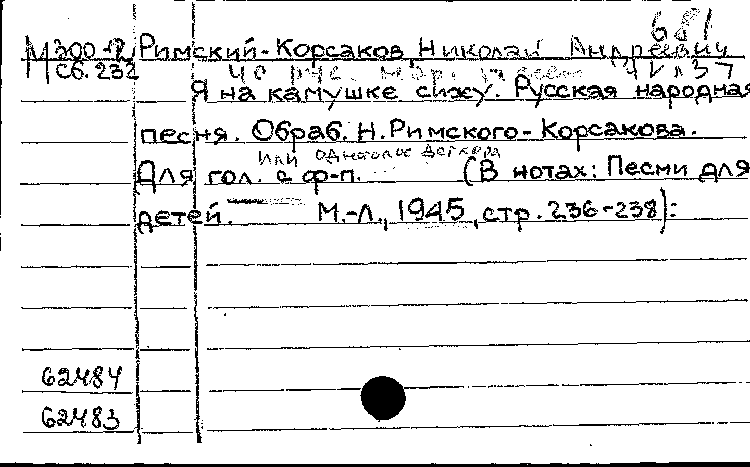 681
М 200-П Римский-Корсаков, Николай Андреевич
Сб. 232
40 рус. нар. песен
Я на камушке сижу. Русская народная
песня. Обраб. Н. Римского-Корсакова.
или одноголос дет. хора
Для гол. с ф-п. (В нотах: Песми для
детей. М.-Л., 1945, стр. 236-238):
62484
62483